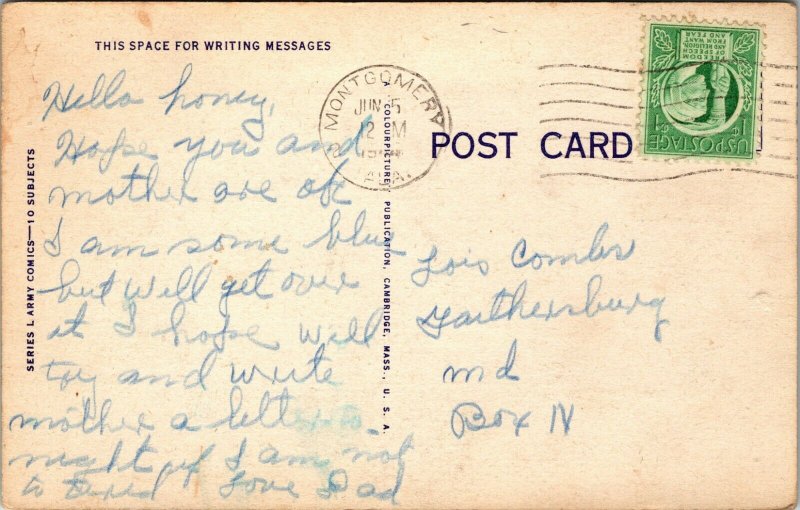 THIS SPACE FOR WRITING MESSAGES
Hello honey,
Hope you and
mother are ok
I am some blue
but will get over
it I hope will
try and write
mother a letter to
night if I am not
to tired Love Dad
SERIES L ARMY COMICS—10 SUBJECTS
A COLOURPICTURE PUBLICATION, CAMBRIDGE, MASS., U. S. A.
MONTGOMERY
JUN 5
12 M
ALA.
POST CARD
FREEDOM
OF SPEECH
AND RELIGION,
FROM WANT
AND FEAR
U.S. POSTAGE
1¢
Lois Combs
Gaithersburg
md
Box N